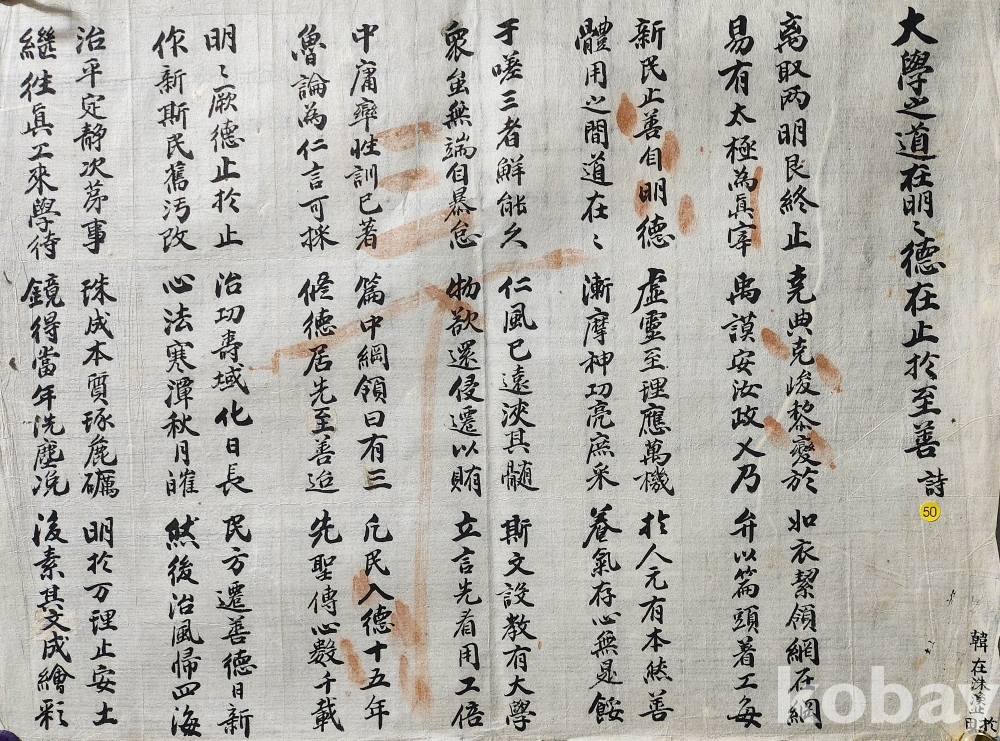 大學之道在明〻德在止於至善 詩
50
离取兩明艮終止 堯典克峻黎變於 如衣絜領網在綱
易有太極為眞宰 禹謨安汝政乂乃 弁以篇頭着工每
新民止善自明德 虛靈至理應萬機 於人元有本然善
體用之間道在〻 漸摩神功亮庶采 養氣存心無是餒
于嗟三者鮮能久 仁風已遠浹其髓 斯文設教有大學
衆虽無端自暴怠 物欲還侵遷以賄 立言先看用工倍
中庸率性訓已著 篇中綱領曰有三 凡民入德十五年
魯論為仁言可採 修德居先至善迨 先聖傳心數千載
明〻厥德止於止 治功壽域化日長 民方遷善德日新
作新斯民舊汚改 心法寒潭秋月皠 然後治風帰四海
治平定靜次苐事 珠成本質琢麁礪 明於万理止安土
繼往眞工來學待 鏡得當年洗塵浼 後素其文成繪彩
韓在洙
kobay